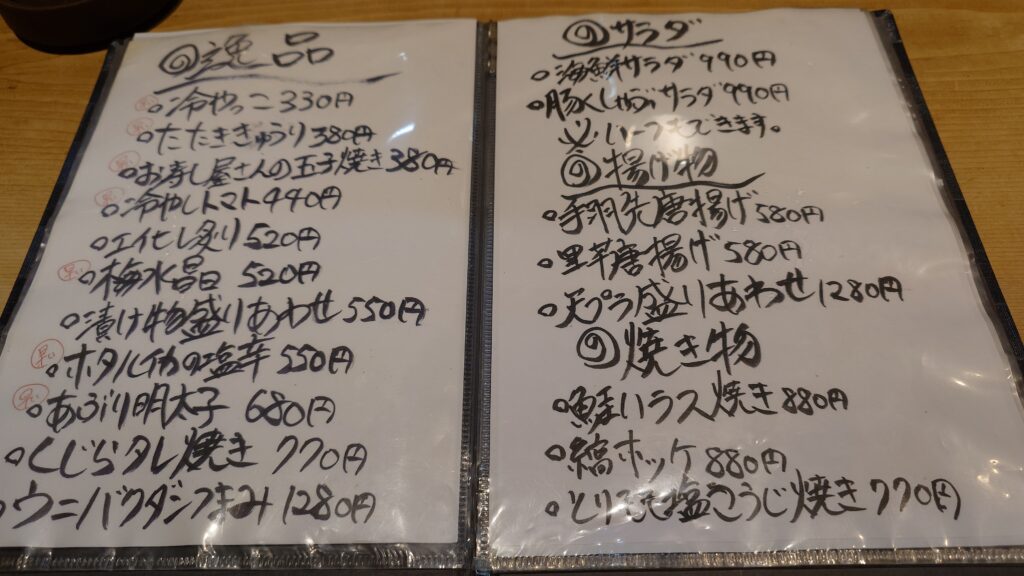 逸品
冷やっこ 330円
たたききゅうり 380円
お寿し屋さんの玉子焼き 380円
冷やしトマト 440円
エイヒレ炙り 520円
梅水晶 520円
漬け物盛りあわせ 550円
ホタルイカの塩辛 550円
あぶり明太子 680円
くじらタレ焼き 770円
ウニバクダンつまみ 1280円
サラダ
海鮮サラダ 990円
豚しゃぶサラダ 990円
できます。
揚げ物
手羽先唐揚げ 580円
里芋唐揚げ 580円
天プラ盛りあわせ 1280円
焼き物
鮭ハラス焼き 880円
縞ホッケ 880円
とりもも塩こうじ焼き 770円